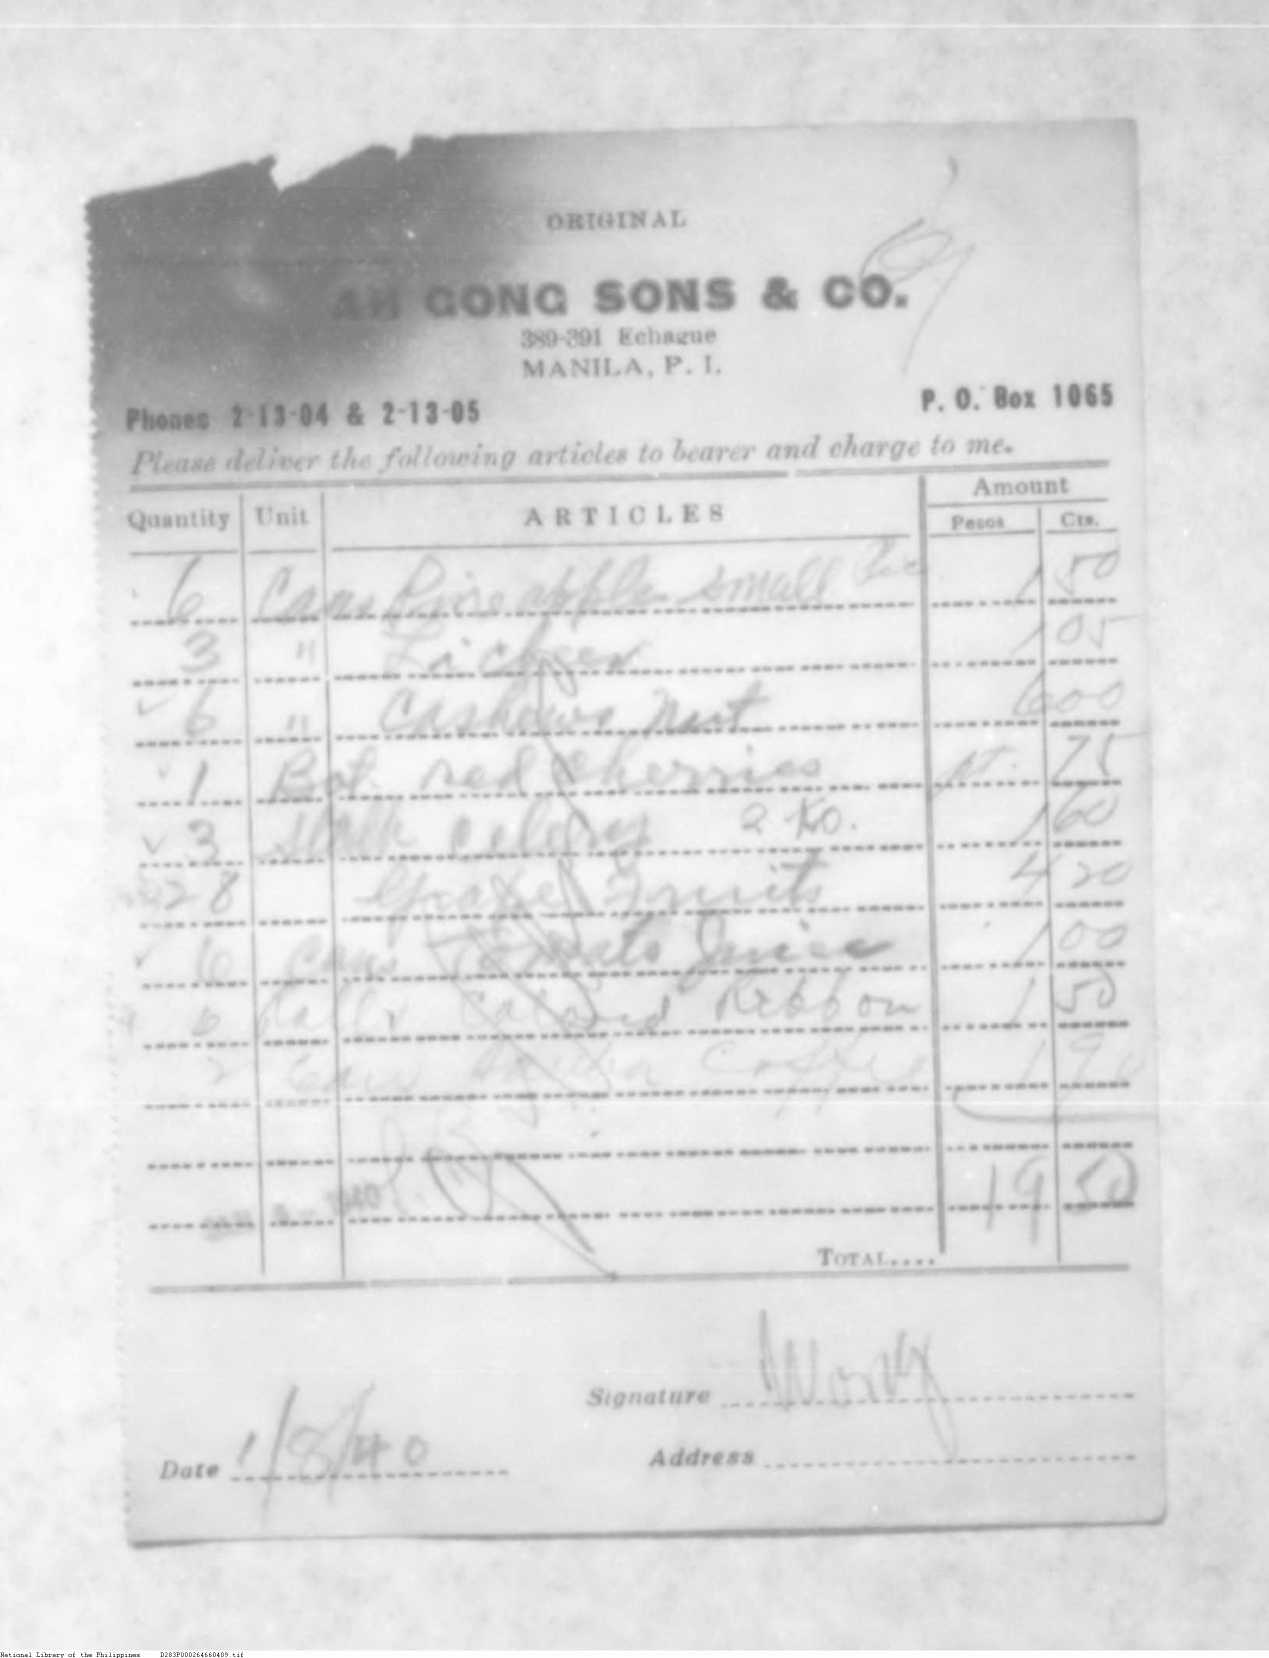 ORIGINAL
AH GONG SONS & CO.
389-391 Echague
MANILA, P. I.
Phones 2-13-04 & 2-13-05 P. O. Box 1065
Please deliver the following articles to bearer and charge to me.
Quantity Unit ARTICLES Amount
Pesos Cts.
6 Cans Pineapple small 1 50
3 " Lichees 1 05
6 " Cashews Nut 6 00
1 Bot. red cherries 75
3 stalk celery 2 Ko. 1 60
28 Grape Fruits 4 20
6 cans Tomato Juice 1 00
6 Colored Ribbon 1 50
2 Coffee 1 90
19 50
TOTAL....
Signature Wong
Date 1/8/40 Address
National Library of the Philippines D283P000264660409.tif